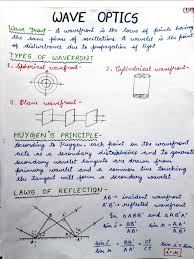 WAVE OPTICS
Wave front - A wavefront is the locus of points having
the same phase of oscillations. A wavelet is the point
of disturbance due to propagation of light
TYPES OF WAVEFRONT
1. Spherical wavefront- 2. Cylindrical wavefront-
3. Plane wavefront-
HUYGEN'S PRINCIPLE-
According to Huygen, each point in the wavefront
acts as a secondary
secondary wavelet tangents are drawn from
primary wavelet and common line touching
the tangent will form a secondary wavelet
LAWS OF REFLECTION
AB = incident wavefront
A'B' = reflected wavefront